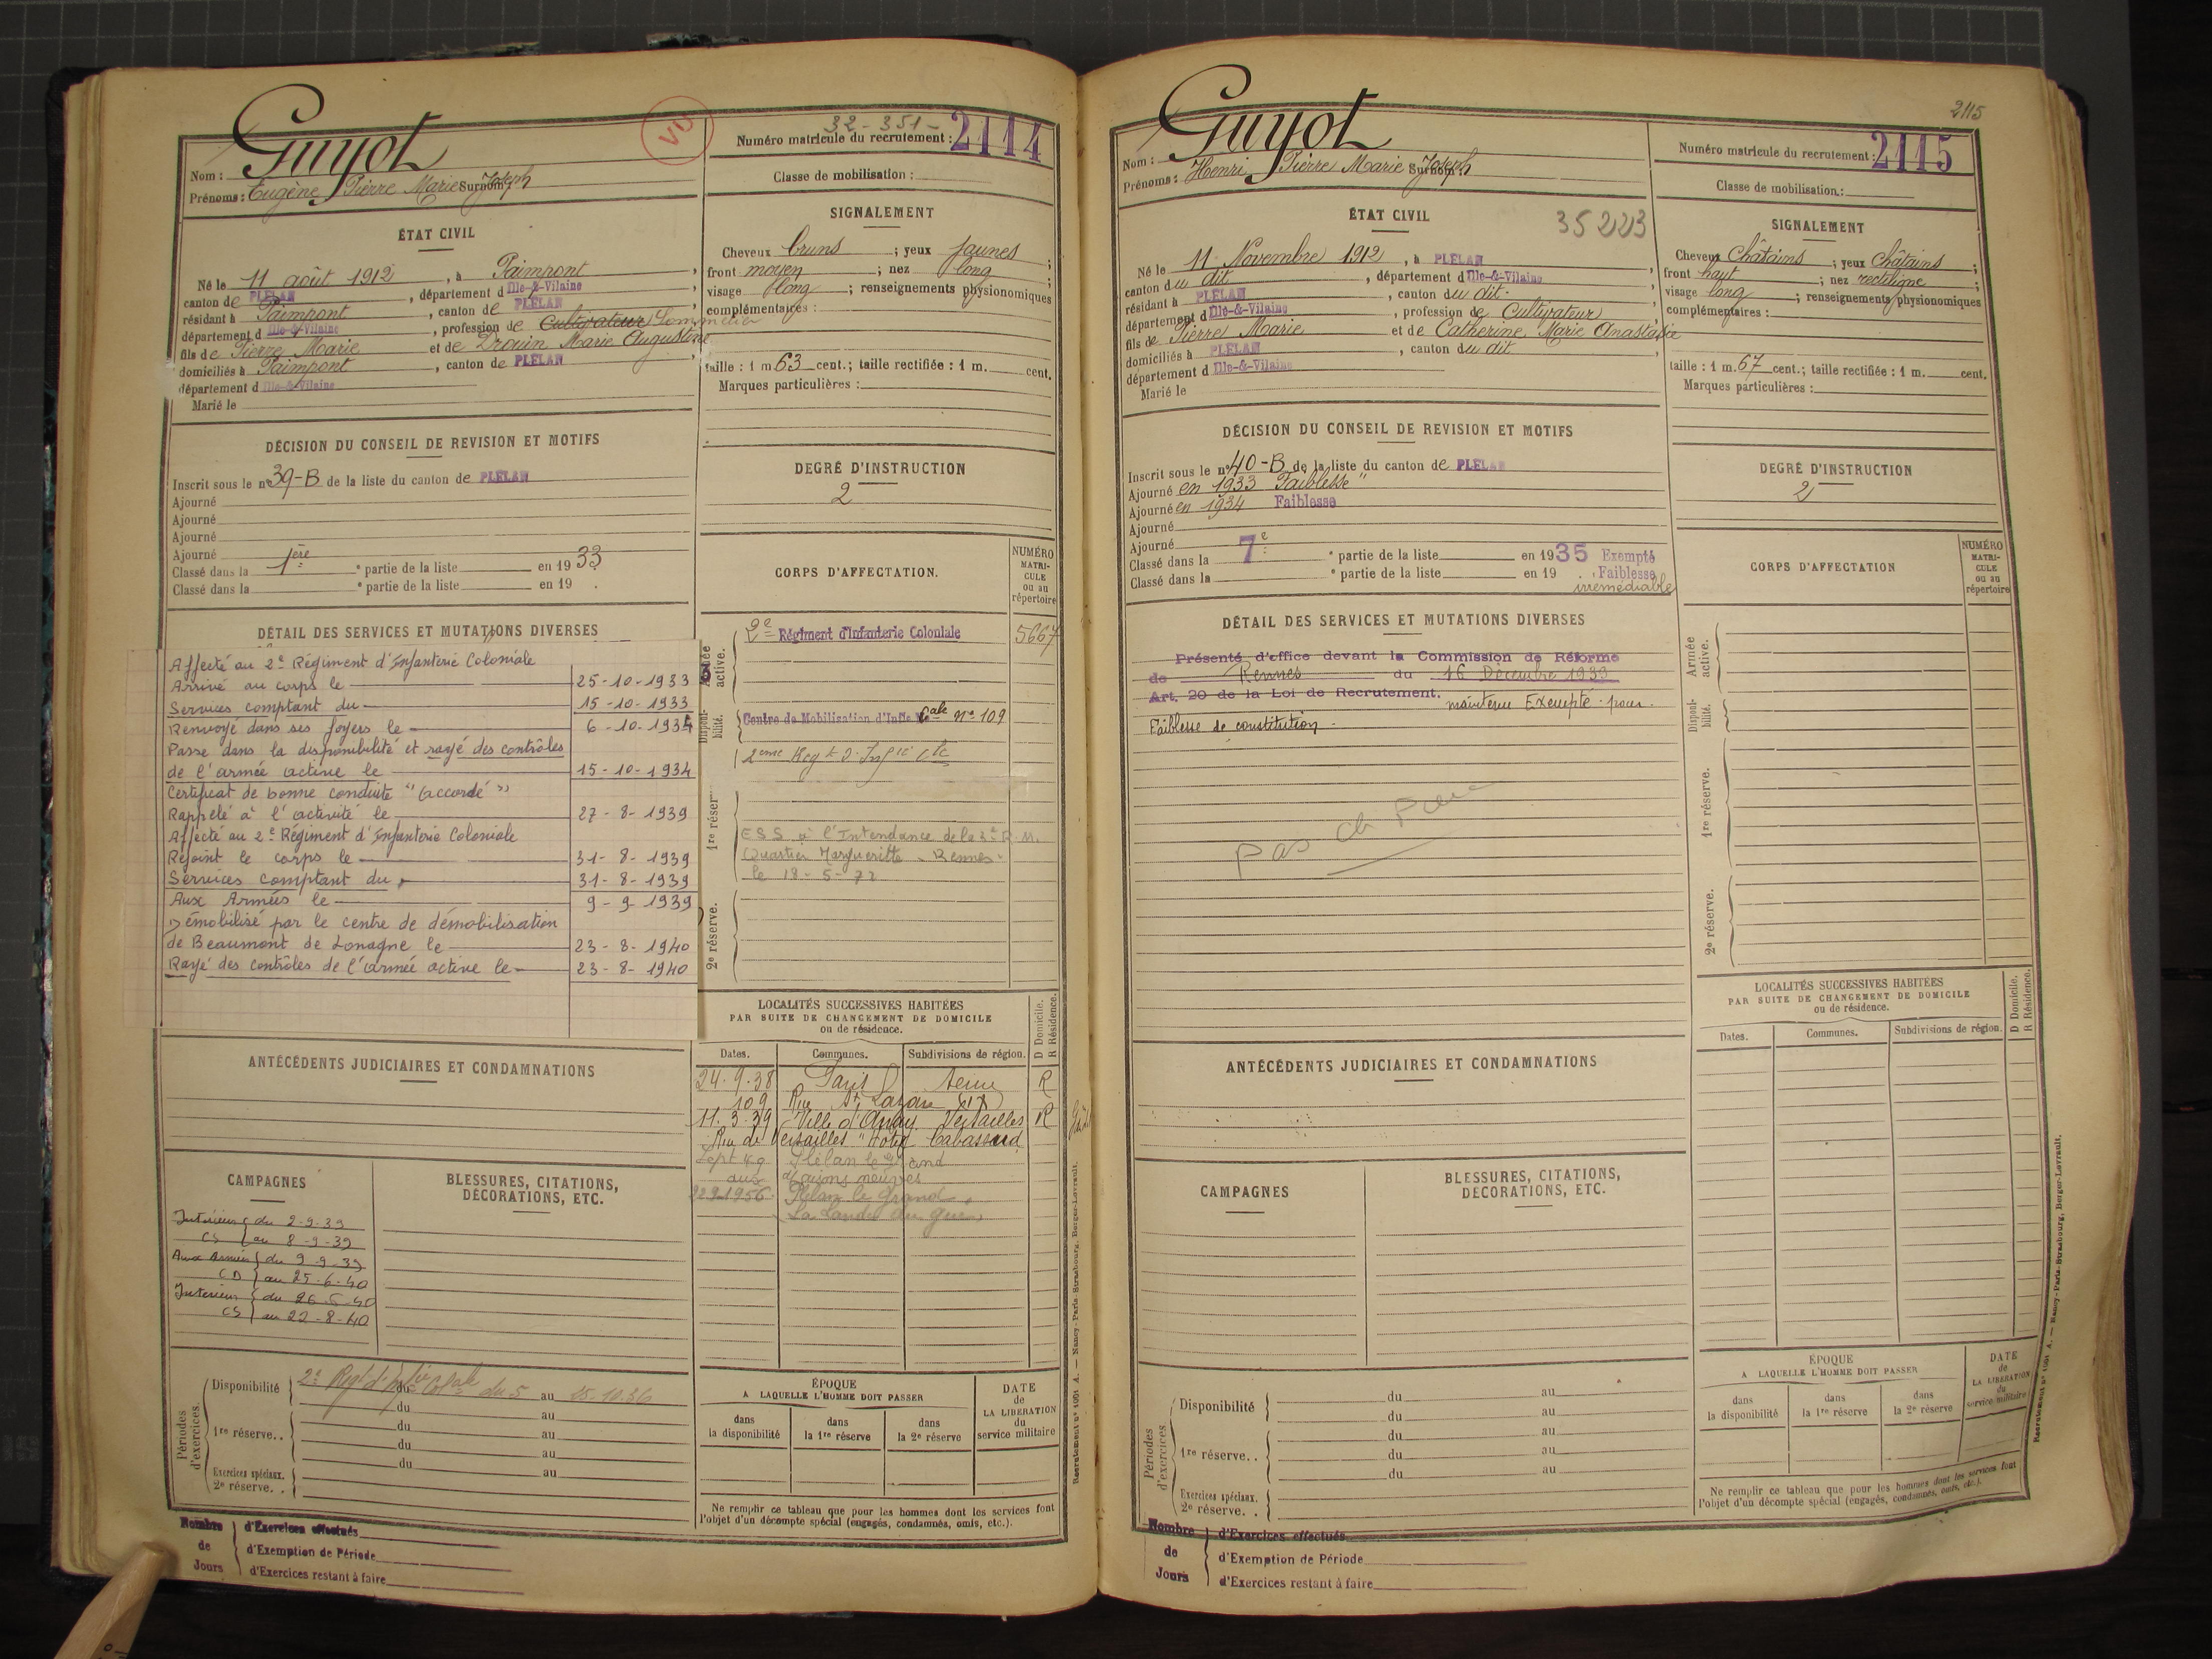 Guyot
VU
32-351-
Numéro matricule du recrutement : 2114
Nom :
Prénoms : Eugène Pierre Marie Joseph Surnom :
Classe de mobilisation :
ÉTAT CIVIL
Né le 11 août 1912, à Paimpont,
canton de PLÉLAN, département d Ille-&-Vilaine
résidant à Paimpont, canton de PLÉLAN,
département d Ille-&-Vilaine, profession de Cultivateur Sommelier
fils de Pierre Marie et de Drouin Marie Augustine
domiciliés à Paimpont, canton de PLÉLAN
département d Ille-&-Vilaine
Marié le
SIGNALEMENT
Cheveux bruns ; yeux jaunes ;
front moyen ; nez long ;
visage long ; renseignements physionomiques
complémentaires :
taille : 1 m. 63 cent. ; taille rectifiée : 1 m. cent.
Marques particulières :
DÉCISION DU CONSEIL DE REVISION ET MOTIFS
Inscrit sous le n° 39-B de la liste du canton de PLÉLAN
Ajourné
Ajourné
Ajourné
Ajourné
Classé dans la 1ère partie de la liste en 1933
Classé dans la partie de la liste en 19 .
DEGRÉ D'INSTRUCTION
2
CORPS D'AFFECTATION.
NUMÉRO MATRICULE ou au répertoire
Armée active.
2e Régiment d'Infanterie Coloniale 5667
Disponibilité.
Centre de Mobilisation d'Infie Cale n° 109
2eme Regt d'Infie Cle
1re réserve.
ESS à l'Intendance de la 3e R.M.
Quartier Margueritte - Rennes -
le 18-5-72
2e réserve.
DÉTAIL DES SERVICES ET MUTATIONS DIVERSES
Affecté au 2e Régiment d'Infanterie Coloniale
Arrivé au corps le 25-10-1933
Services comptant du 15-10-1933
Renvoyé dans ses foyers le 6-10-1934
Passe dans la disponibilité et rayé des contrôles
de l'armée active le 15-10-1934
Certificat de bonne conduite "accordé"
Rappelé à l'activité le 27-8-1939
Affecté au 2e Régiment d'Infanterie Coloniale
Rejoint le corps le 31-8-1939
Services comptant du 31-8-1939
Aux Armées le 9-9-1939
Démobilisé par le centre de démobilisation
de Beaumont de Lomagne le 23-8-1940
Rayé des contrôles de l'armée active le 23-8-1940
ANTÉCÉDENTS JUDICIAIRES ET CONDAMNATIONS
LOCALITÉS SUCCESSIVES HABITÉES
PAR SUITE DE CHANGEMENT DE DOMICILE
ou de résidence.
D Domicile.
R Résidence.
Dates. Communes. Subdivisions de région.
24.9.38 Paris Seine R
109 Rue St Lazare
11.3.39 Ville d'Avray Versailles R
Rue de Versailles "Hotel Cabassud
Sept 49 Plélan le Grand
aux Maisons neuves
22.9.1956 Plélan le Grand
La Lande du
CAMPAGNES
BLESSURES, CITATIONS,
DÉCORATIONS, ETC.
Intérieur du 2-9-39
CS au 8-9-39
Aux Armées du 9-9-39
CD au 25-6-40
Intérieur du 26-6-40
CS au 22-8-40
Périodes d'exercices.
Disponibilité 2e Regt d'Infie Colale du 5 au 25.10.36
du au
1re réserve. . du au
du au
du au
Exercices spéciaux.
2e réserve. .
ÉPOQUE
A LAQUELLE L'HOMME DOIT PASSER
dans la disponibilité
dans la 1re réserve
dans la 2e réserve
DATE de LA LIBERATION du service militaire
Ne remplir ce tableau que pour les hommes dont les services font
l'objet d'un décompte spécial (engagés, condamnés, omis, etc.).
Nombre de Jours
d'Exercices effectués
d'Exemption de Période
d'Exercices restant à faire
Recrutement n° 1001 A. — Nancy-Paris-Strasbourg, Berger-Levrault.
2115
Guyot
Numéro matricule du recrutement : 2115
Nom :
Prénoms : Henri Pierre Marie Joseph Surnom :
Classe de mobilisation :
ÉTAT CIVIL
35223
Né le 11 Novembre 1912, à PLÉLAN,
canton du dit, département d Ille-&-Vilaine
résidant à PLÉLAN, canton du dit.
département d Ille-&-Vilaine, profession de Cultivateur
fils de Pierre Marie et de Catherine Marie Anastasie
domiciliés à PLÉLAN, canton du dit
département d Ille-&-Vilaine
Marié le
SIGNALEMENT
Cheveux Châtains ; yeux Châtains ;
front haut ; nez rectiligne ;
visage long ; renseignements physionomiques
complémentaires :
taille : 1 m. 67 cent. ; taille rectifiée : 1 m. cent.
Marques particulières :
DÉCISION DU CONSEIL DE REVISION ET MOTIFS
Inscrit sous le n° 40-B de la liste du canton de PLÉLAN
Ajourné en 1933 "Faiblesse"
Ajourné en 1934 Faiblesse
Ajourné
Ajourné
Classé dans la 7e partie de la liste en 1935 Exempté
Classé dans la partie de la liste en 19 . Faiblesse
irrémédiable
DEGRÉ D'INSTRUCTION
2
CORPS D'AFFECTATION
NUMÉRO MATRICULE ou au répertoire
Armée active.
Disponibilité.
1re réserve.
2e réserve.
DÉTAIL DES SERVICES ET MUTATIONS DIVERSES
Présenté d'office devant la Commission de Réforme
de Rennes du 16 Décembre 1939
Art. 20 de la Loi de Recrutement. maintenu Exempté pour
Faiblesse de constitution.
pas de
ANTÉCÉDENTS JUDICIAIRES ET CONDAMNATIONS
LOCALITÉS SUCCESSIVES HABITÉES
PAR SUITE DE CHANGEMENT DE DOMICILE
ou de résidence.
D Domicile.
R Résidence.
Dates. Communes. Subdivisions de région.
CAMPAGNES
BLESSURES, CITATIONS,
DÉCORATIONS, ETC.
Périodes d'exercices
Disponibilité du au
du au
1re réserve. . du au
du au
du au
Exercices spéciaux.
2e réserve. .
ÉPOQUE
A LAQUELLE L'HOMME DOIT PASSER
dans la disponibilité
dans la 1re réserve
dans la 2e réserve
DATE de LA LIBERATION du service militaire
Ne remplir ce tableau que pour les hommes dont les services font
l'objet d'un décompte spécial (engagés, condamnés, omis, etc.).
Nombre de Jours
d'Exercices effectués
d'Exemption de Période
d'Exercices restant à faire
Recrutement n° 1001 A. — Nancy-Paris-Strasbourg, Berger-Levrault.